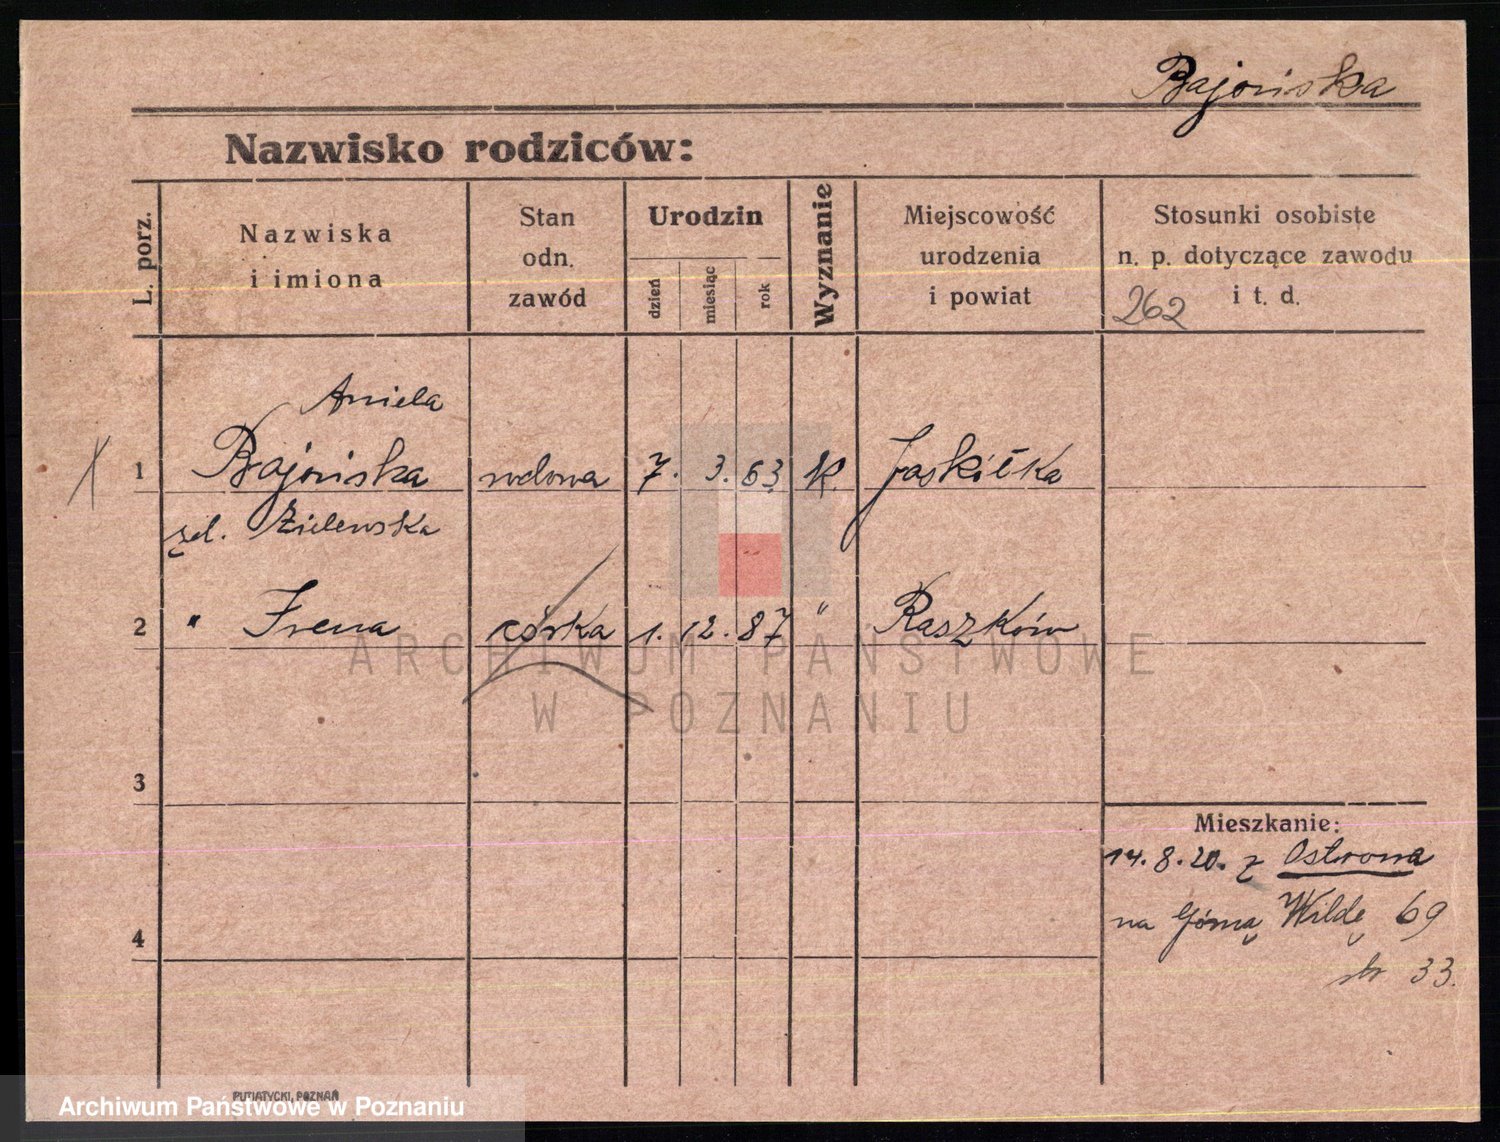 Bajońska
Nazwisko rodziców:
L. porz.
Nazwiska
i imiona
Stan
odn.
zawód
Urodzin
dzień
miesiąc
rok
Wyznanie
Miejscowość
urodzenia
i powiat
Stosunki osobiste
n. p. dotyczące zawodu
i t. d.
262
Aniela
1 Bajońska wdowa 7. 3. 63 K. Jaskółka
Zielewska
2 " Irena córka 1. 12. 87 " Raszków
3
Mieszkanie:
14.8.20. z Ostrowa
na Górną Wildę 69
33.
4
ARCHIWUM PAŃSTWOWE
W POZNANIU
PUTIATYCKI, POZNAŃ
Archiwum Państwowe w Poznaniu